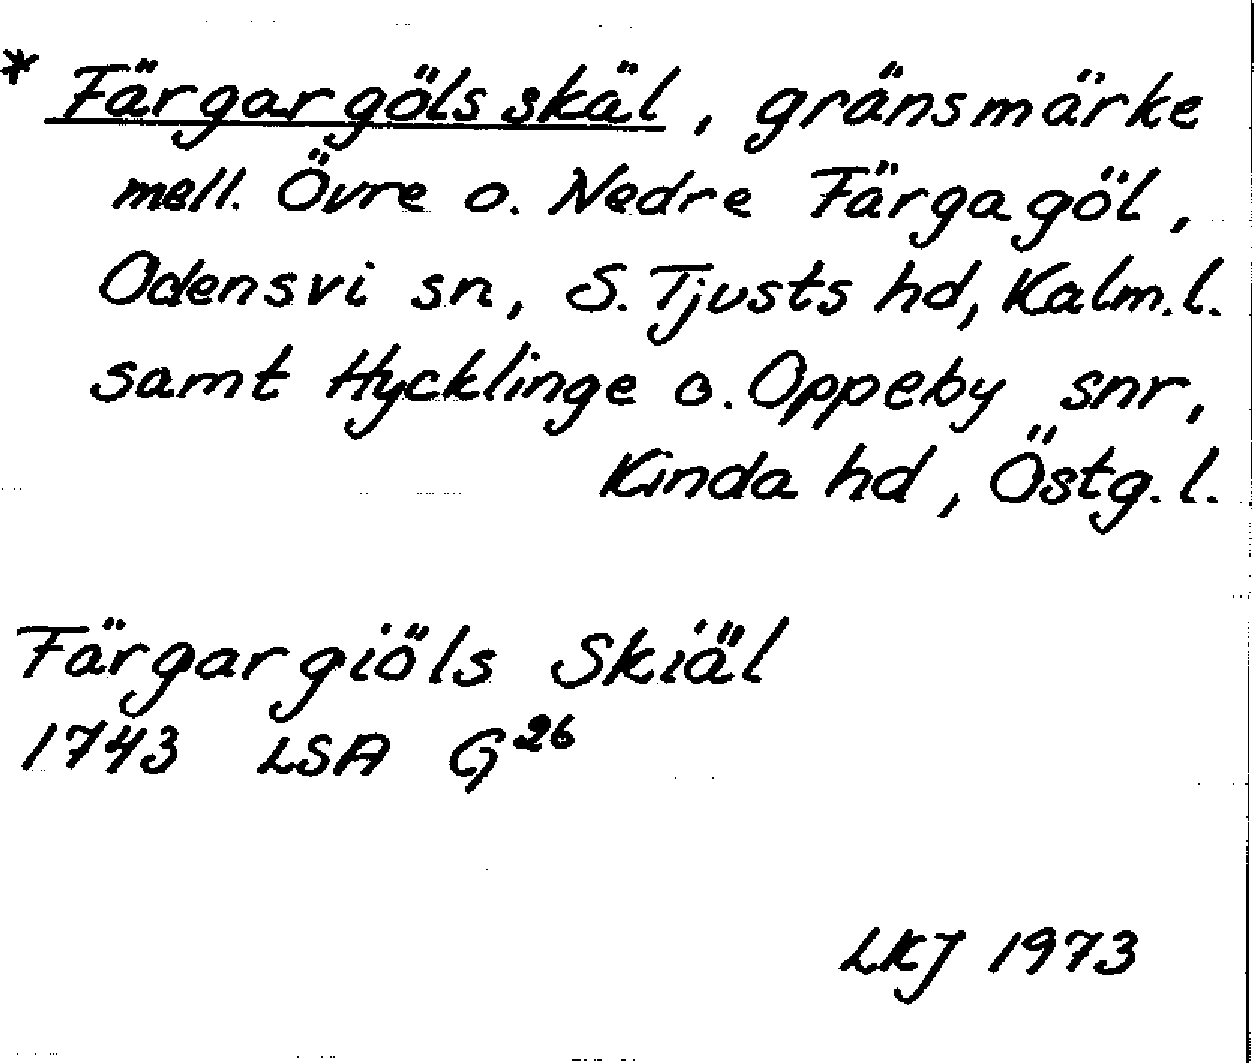 * Färgargölsskäl, gränsmärke
mell. Övre o. Nedre Färgagöl,
Odensvi sn, S. Tjusts hd, Kalm. l.
samt Hycklinge o. Oppeby snr,
Kinda hd, Östg. l.
Färgargiöls Skiäl
1743 LSA G²⁶
LKJ 1973